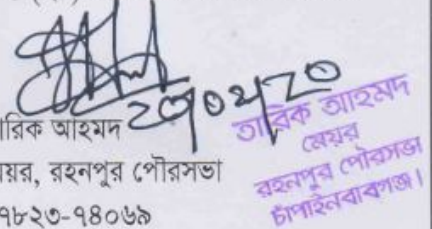 ারিক আহমদ
ময়র, রহনপুর পৌরসভা
৭৮২৩-৭৪০৬৯
তারিক আহমদ
মেয়র
রহনপুর পৌরসভা
চাঁপাইনবাবগঞ্জ।